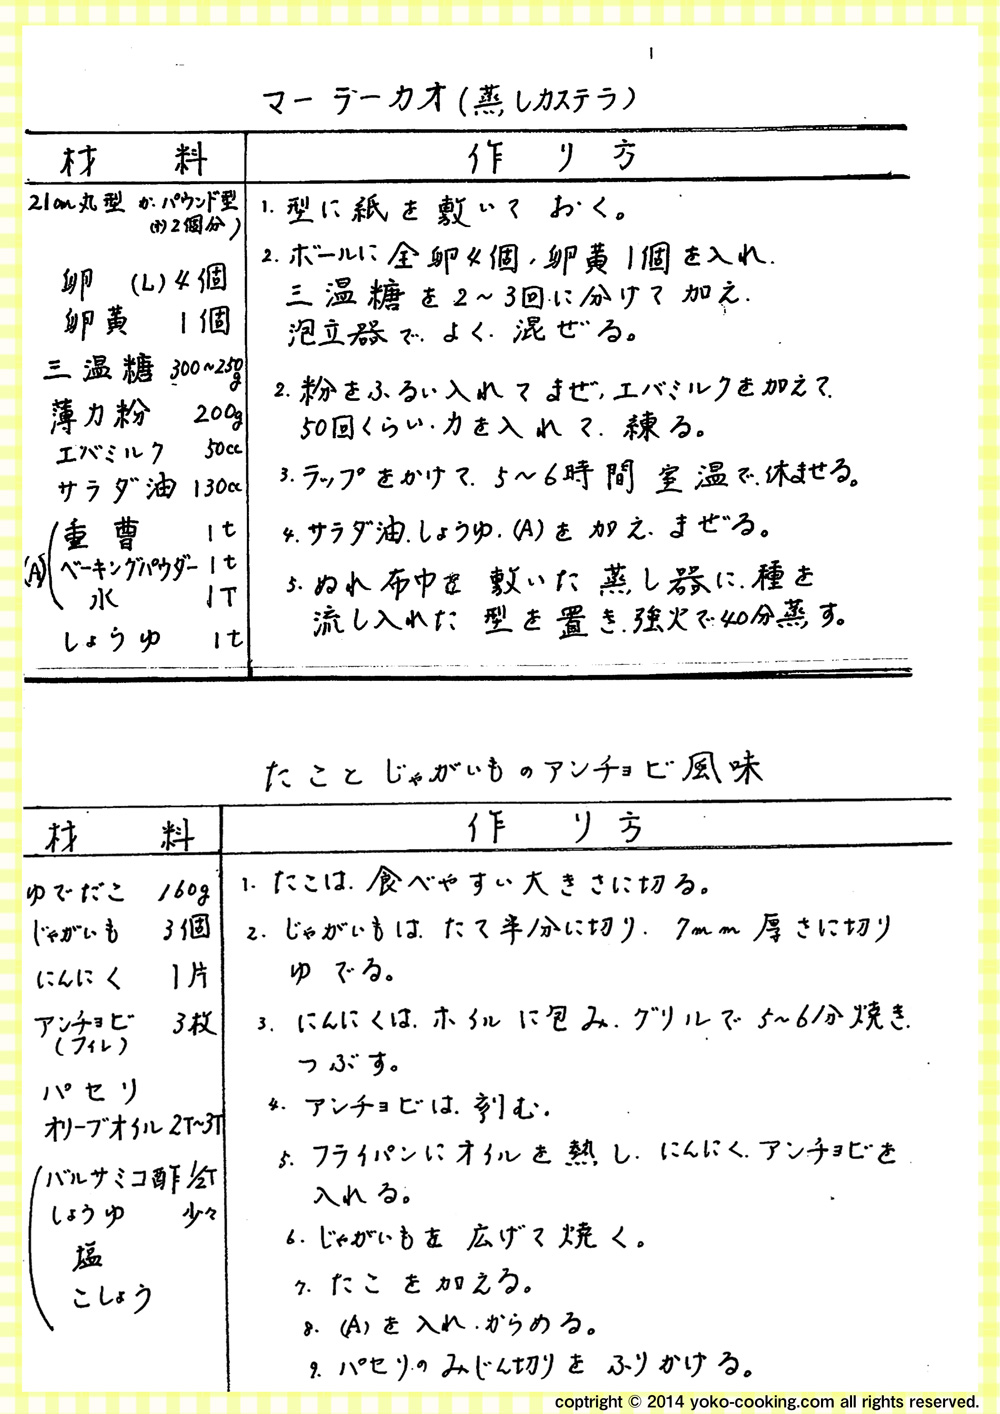 マーラーカオ(蒸しカステラ)
材料
作り方
21cm丸型 か パウンド型
(中)2個分)
卵 (L)4個
卵黄 1個
三温糖 300~250g
薄力粉 200g
エバミルク 50cc
サラダ油 130cc
(A)
重曹 1t
ベーキングパウダー 1t
水 1T
しょうゆ 1t
1. 型に紙を敷いて おく。
2. ボールに全卵4個、卵黄1個を入れ、
三温糖を2~3回に分けて加え、
泡立器で、よく混ぜる。
2. 粉をふるい入れてまぜ、エバミルクを加えて、
50回くらい、力を入れて、練る。
3. ラップをかけて、5~6時間 室温で、休ませる。
4. サラダ油、しょうゆ、(A)を加え、まぜる。
5. ぬれ布巾を敷いた蒸し器に、種を
流し入れた型を置き、強火で40分蒸す。
たことじゃがいものアンチョビ風味
材料
作り方
ゆでだこ 160g
じゃがいも 3個
にんにく 1片
アンチョビ 3枚
(フィレ)
パセリ
オリーブオイル 2T~3T
バルサミコ酢 1/2T
しょうゆ 少々
塩
こしょう
1. たこは、食べやすい大きさに切る。
2. じゃがいもは、たて半分に切り、7mm厚さに切り
ゆでる。
3. にんにくは、ホイルに包み、グリルで5~6分焼き、
つぶす。
4. アンチョビは、刻む。
5. フライパンにオイルを熱し、にんにく、アンチョビを
入れる。
6. じゃがいもを広げて焼く。
7. たこを加える。
8. (A)を入れ、からめる。
9. パセリのみじん切りをふりかける。
copyright © 2014 yoko-cooking.com all rights reserved.